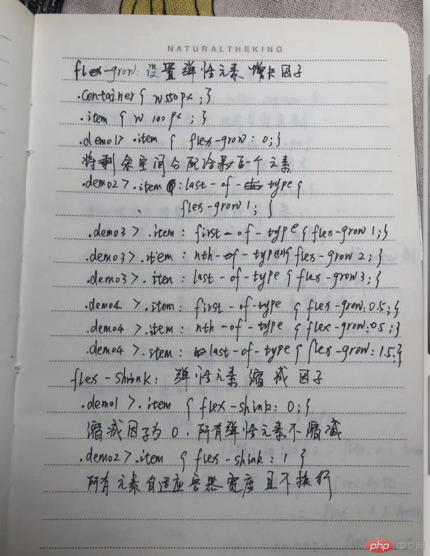 NATURALTHEKING
flex-grow: 设置弹性元素增长因子
.container{ w 550px ;}
.item { w 100px ;}
.demo1> .item { flex-grow: 0;}
将剩余空间分配给最后一个元素
.demo2> .item :last-of-type{
flex-grow 1; }
.demo3> .item : first-of-type{ flex-grow 1;}
.demo3> .item : nth-of-type(2){ flex-grow 2;}
.demo3> .item : last-of-type { flex-grow 3;}
.demo4 > .item : first-of-type { flex-grow:0.5;}
.demo4 > .item : nth-of-type { flex-grow:0.5;}
.demo4 > .item : last-of-type { flex-grow:1.5}
flex-shink: 弹性元素缩减因子
.demo1 >.item { flex-shink: 0;}
缩减因子为0,所有弹性元素不缩减
.demo2> .item { flex-shink: 1 }
所有元素自适应容器宽度且不换行
php 中文网